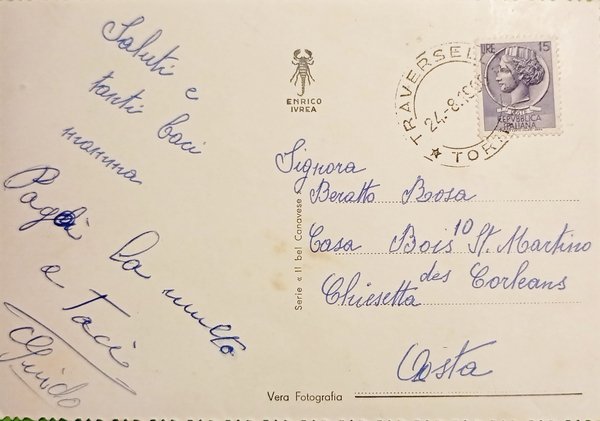 Saluti e
tanti baci
mamma
Paga la multa
e Taci
Guido
ENRICO
IVREA
Serie « Il bel Canavese »
Vera Fotografia
TRAVERSEL
24.-8.195
TORI
LIRE 15
POSTE
REPVBBLICA
ITALIANA
Signora
Beratto Rosa
Casa Bois 10 St. Martino
des Corleans
Chiesetta
Aosta